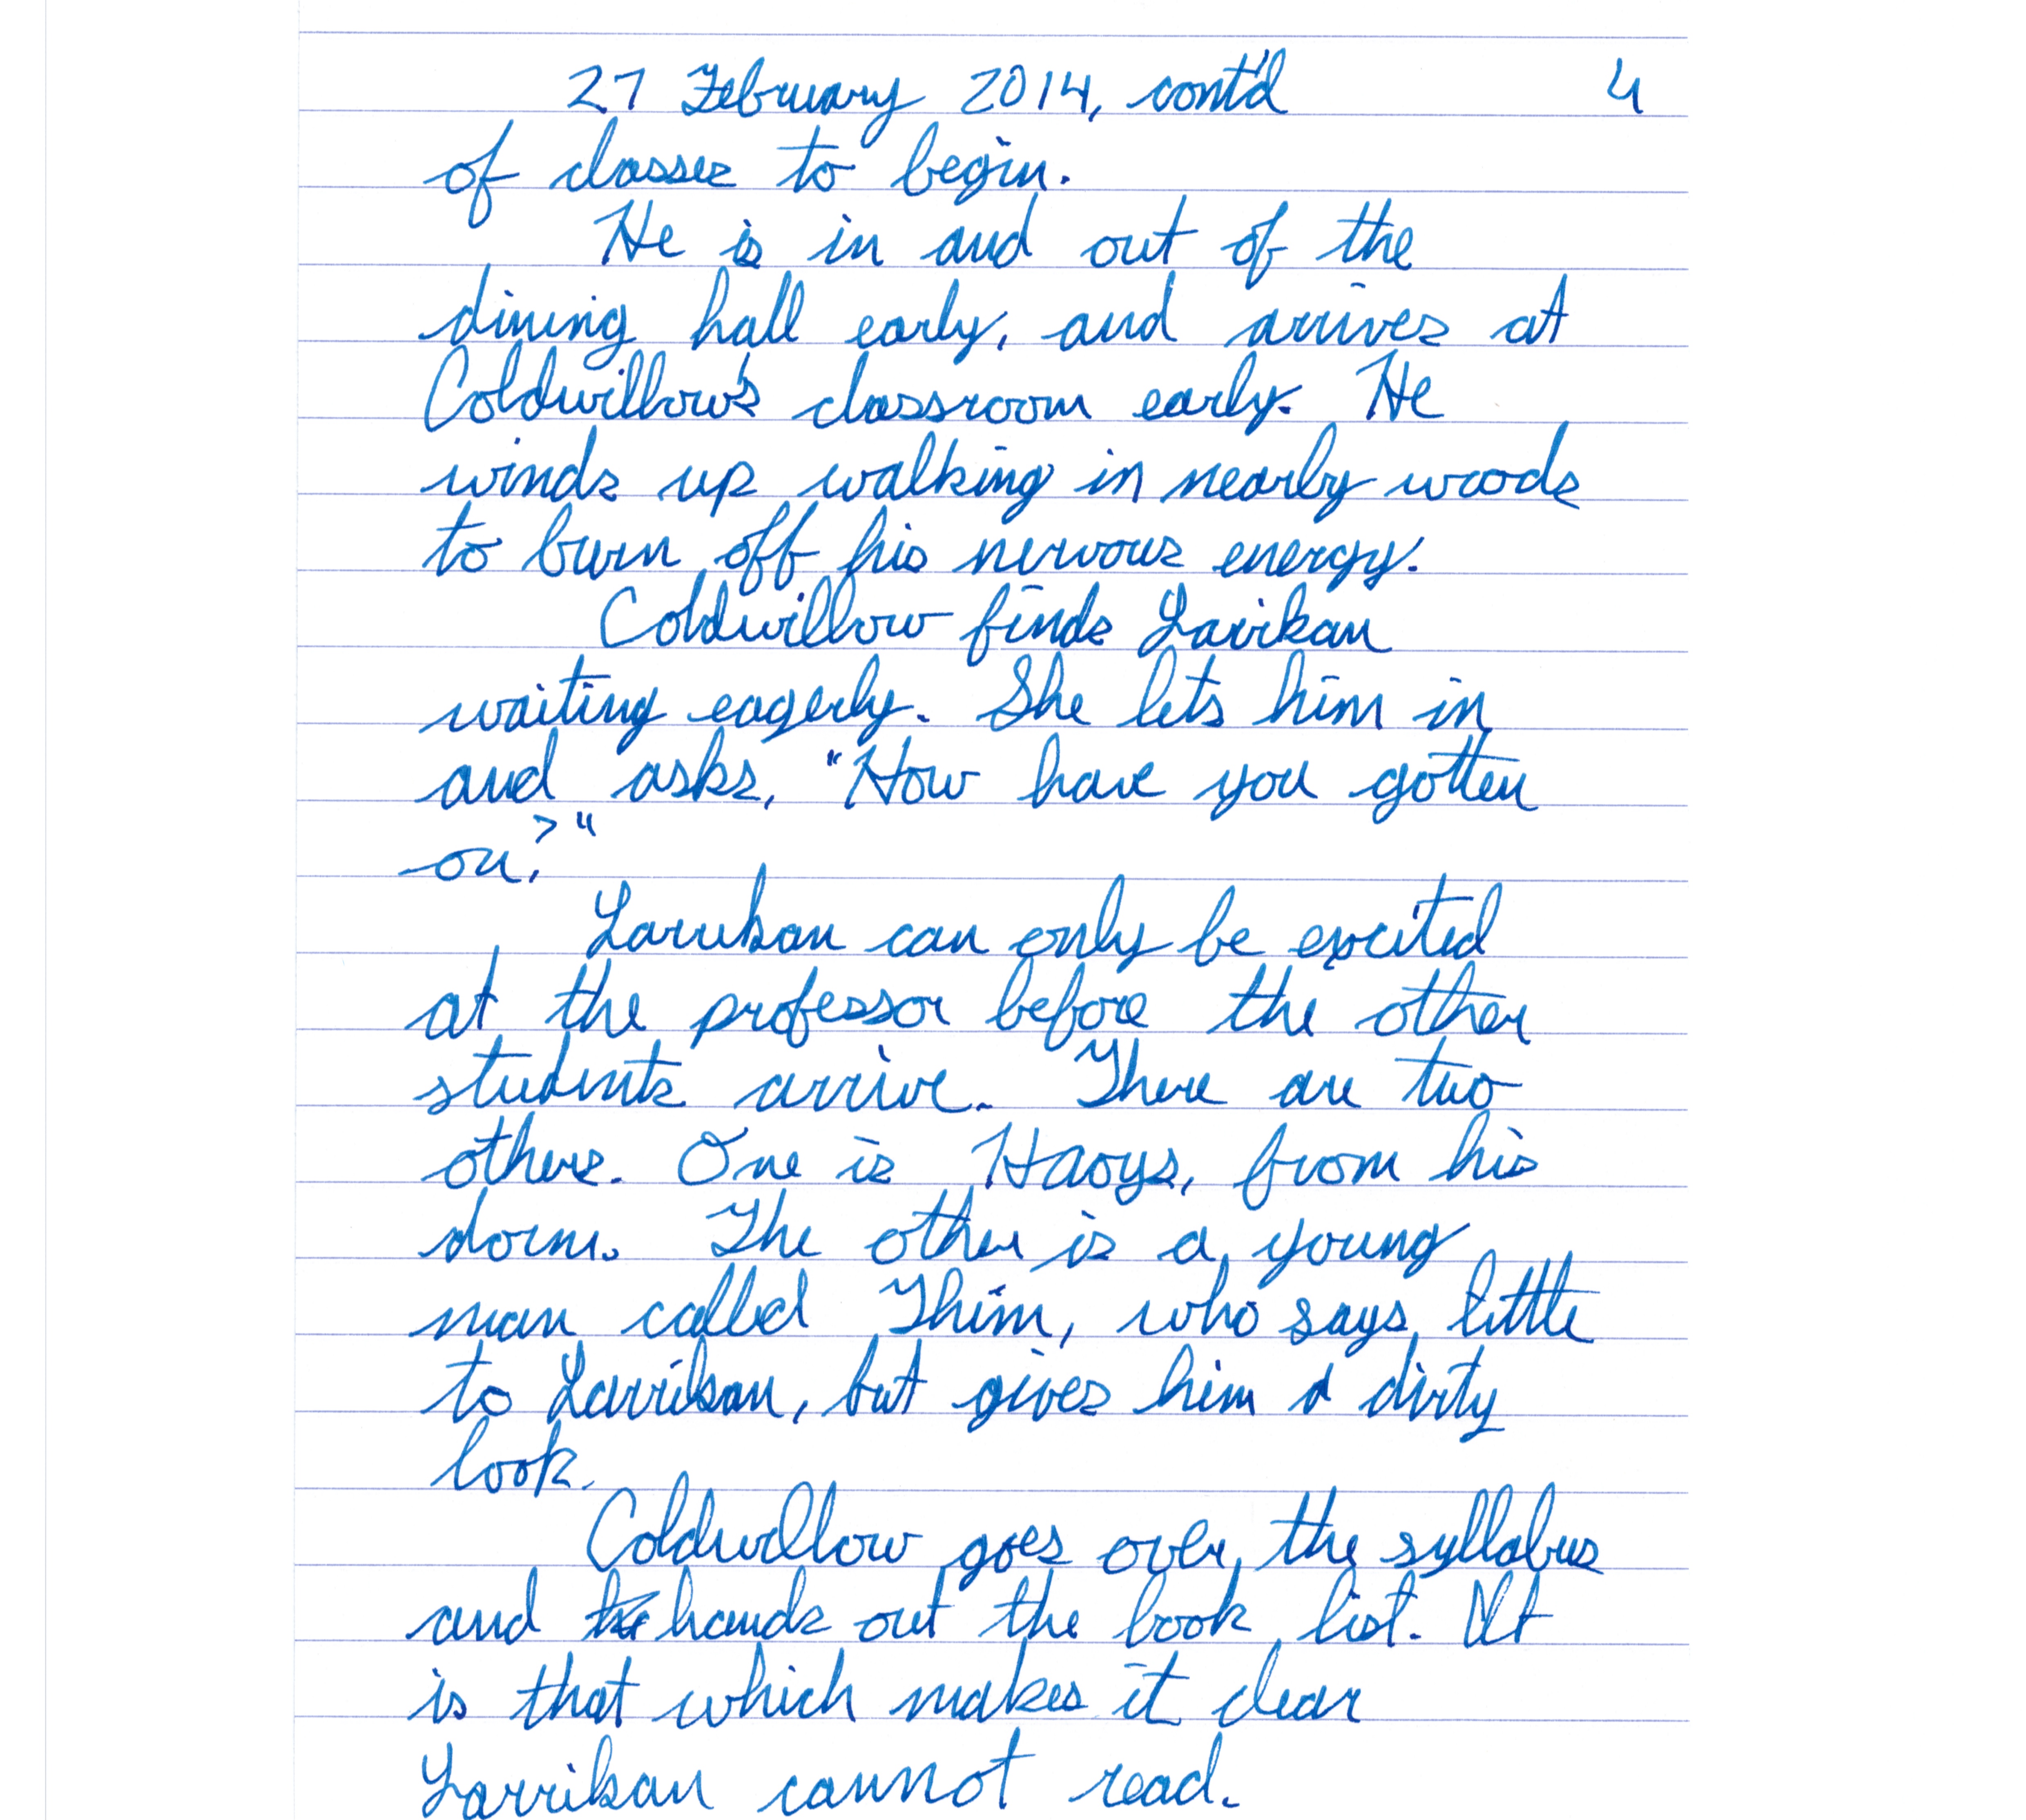 27 February 2014, cont'd 4
of classes to begin.
He is in and out of the
dining hall early, and arrives at
Coldwillow's classroom early. He
winds up walking in nearby woods
to burn off his nervous energy.
Coldwillow finds Larrikan
waiting eagerly. She lets him in
and asks, "How have you gotten
on?"
Larrikan can only be excited
at the professor before the other
students arrive. There are two
others. One is Haoys, from his
dorm. The other is a young
man called Thim, who says little
to Larrikan, but gives him a dirty
look.
Coldwillow goes over the syllabus
and hands out the book list. It
is that which makes it clear
Larrikan cannot read.